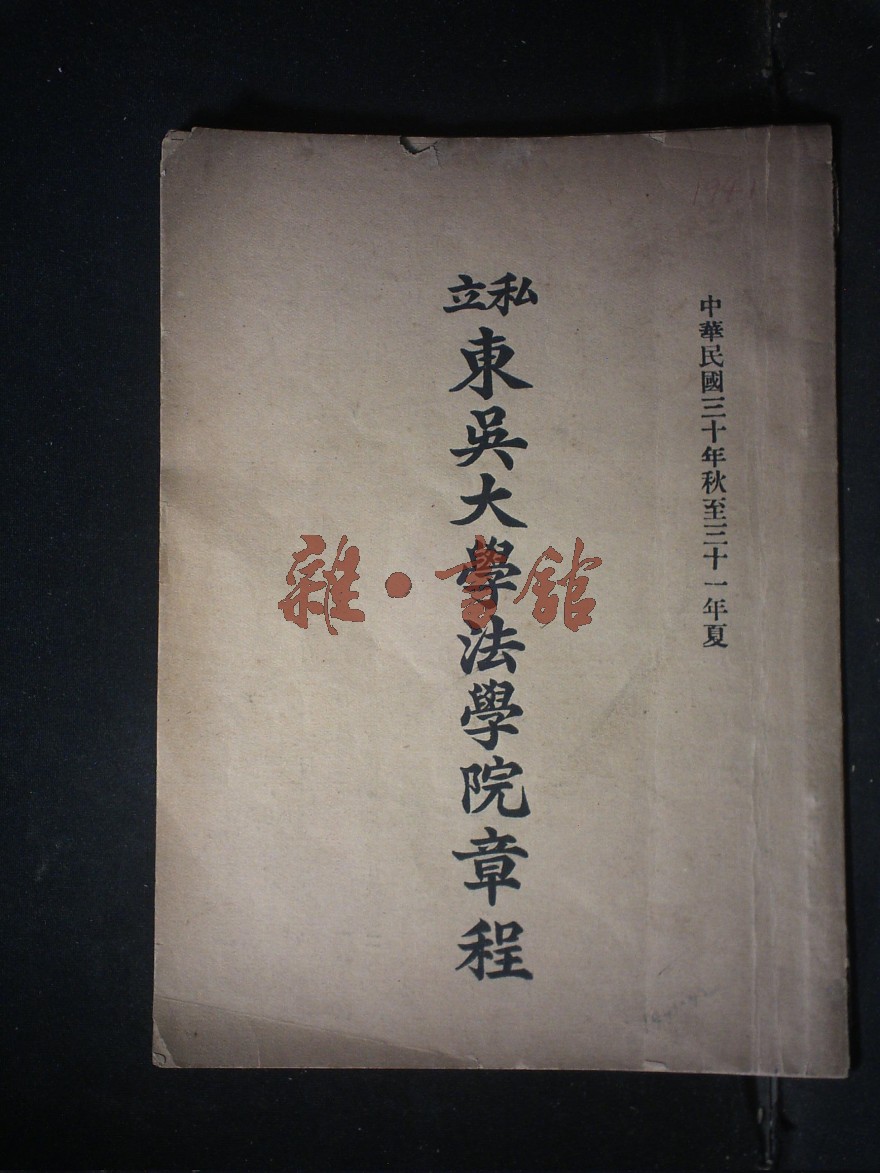 中華民國三十年秋至三十一年夏
私立
東吳大學法學院章程
雜·書館
194-1